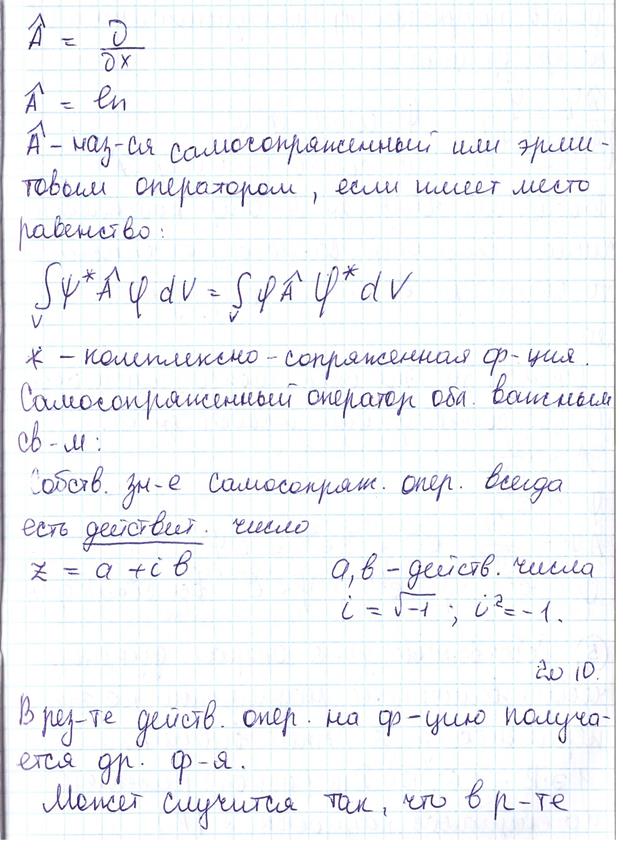 Â = ∂/∂x
Â = ln
Â - наз-ся самосопряженный или эрми-
товым оператором, если имеет место
равенство:
∫ᵥ ψ* Â φ dV = ∫ᵥ φ Â ψ* dV
* - комплексно-сопряженная ф-ция.
Самосопряженный оператор обл. важным
св-м:
Собств. зн-е самосопряж. опер. всегда
есть действит. число
z = a + i в a, в - действ. числа
i = √-1 ; i² = -1.
20 10.
В рез-те действ. опер. на ф-цию получа-
ется др. ф-я.
Может случится так, что в р-те